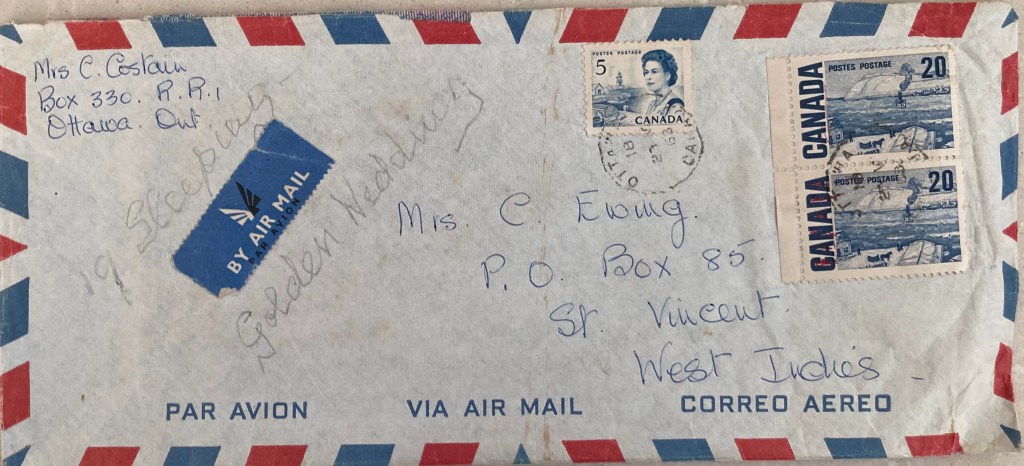 Mrs C. Costain
Box 330. R.R.1
Ottawa. Ont.
19
BY AIR MAIL
PAR AVION
Golden Wedding
POSTES POSTAGE
5
CANADA
POSTES POSTAGE
20
CANADA
POSTES POSTAGE
20
CANADA
Mrs. C. Ewing.
P.O. Box 85.
St. Vincent.
West Indies
PAR AVION VIA AIR MAIL CORREO AEREO